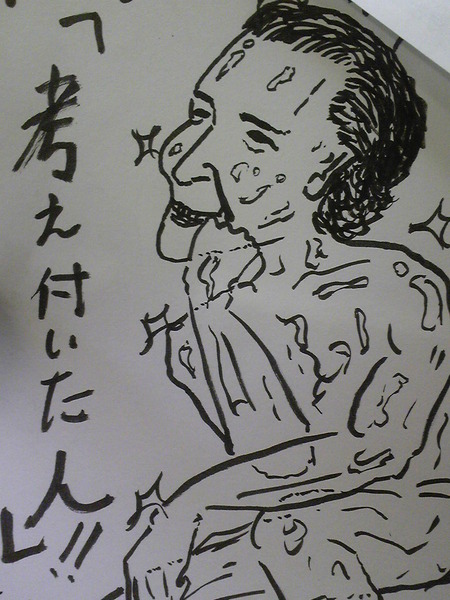 「考え付いた人!!」